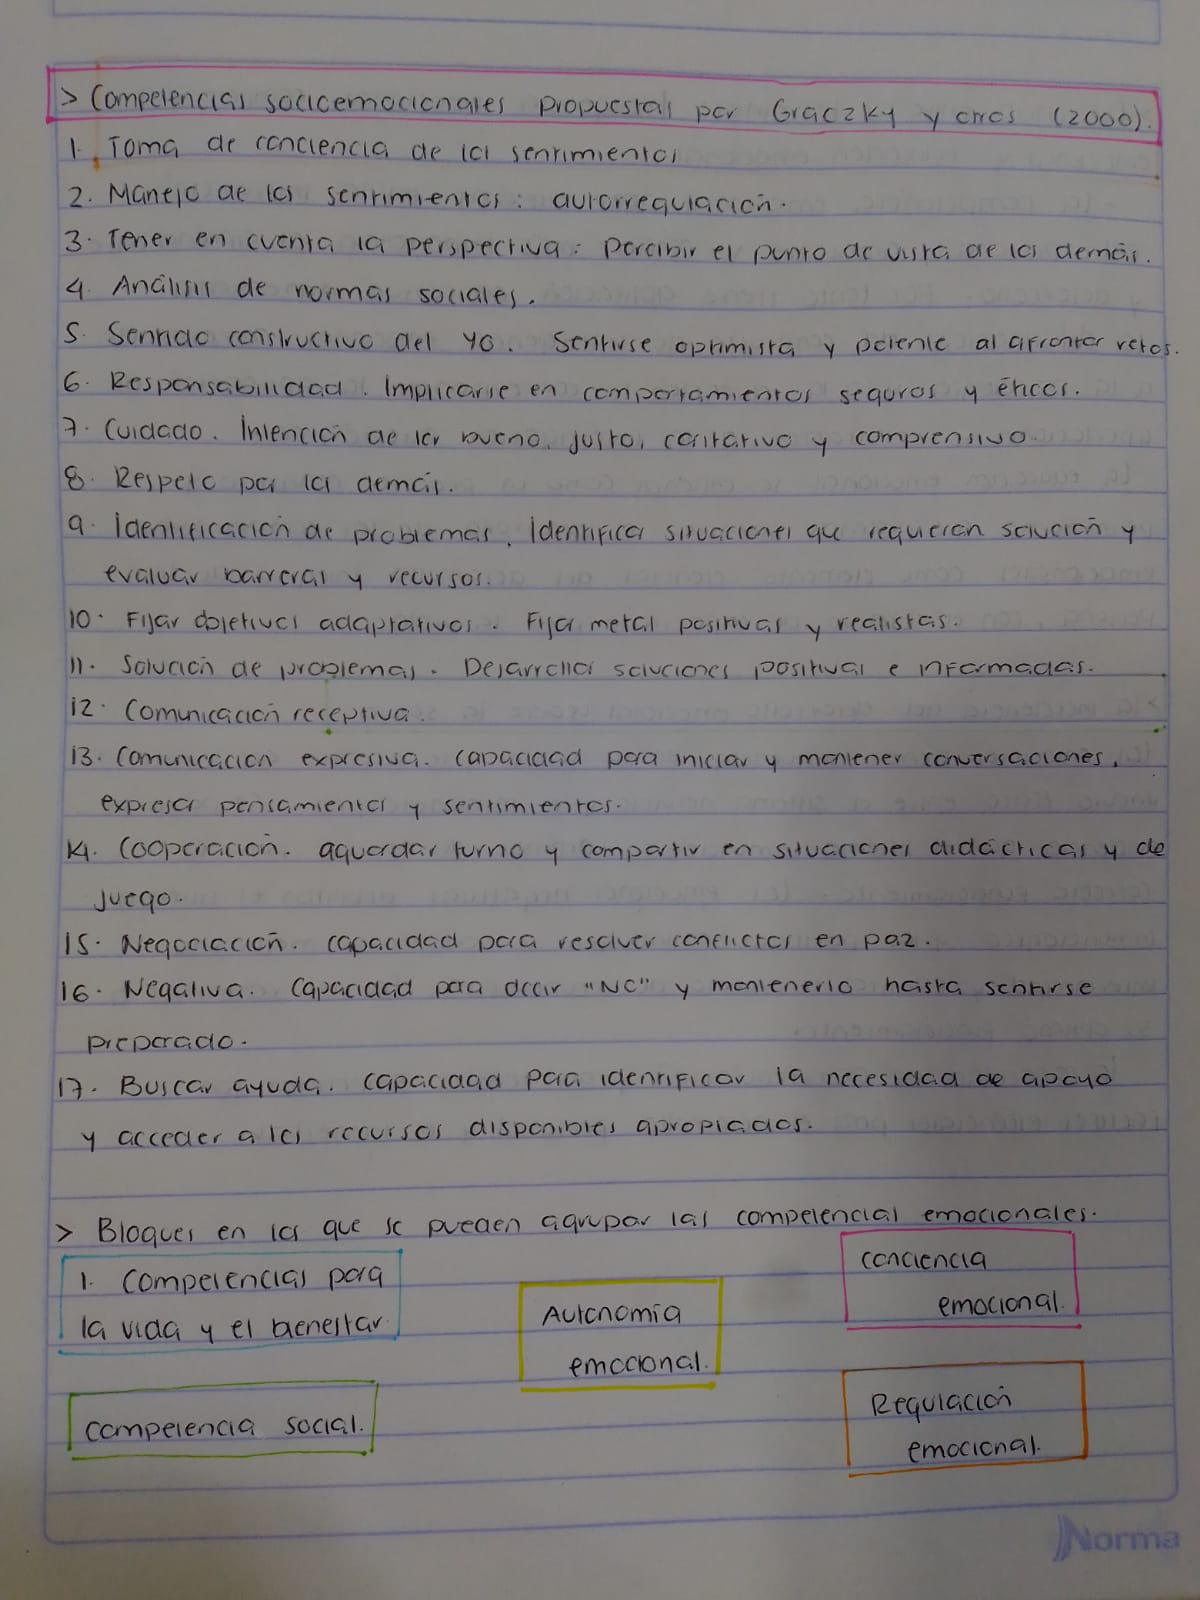 > Competencias socioemocionales propuestas por Graczky y otros (2000).
1. Toma de conciencia de los sentimientos
2. Manejo de los sentimientos: autorregulación.
3. Tener en cuenta la perspectiva: Percibir el punto de vista de los demás.
4. Análisis de normas sociales.
5. Sentido constructivo del yo. Sentirse optimista y potente al afrontar retos.
6. Responsabilidad. Implicarse en comportamientos seguros y éticos.
7. Cuidado. Intención de ser bueno, justo, caritativo y comprensivo.
8. Respeto por los demás.
9. Identificación de problemas. Identificar situaciones que requieran solución y
evaluar barreras y recursos.
10. Fijar objetivos adaptativos. Fijar metas positivas y realistas.
11. Solución de problemas. Desarrollar soluciones positivas e informadas.
12. Comunicación receptiva.
13. Comunicacion expresiva. capacidad para iniciar y mantener conversaciones,
expresar pensamientos y sentimientos.
14. Cooperación. aguardar turno y compartir en situaciones didácticas y de
juego.
15. Negociación. capacidad para resolver conflictos en paz.
16. Negativa. Capacidad para decir "NO" y mantenerlo hasta sentirse
preparado.
17. Buscar ayuda. capacidad para identificar la necesidad de apoyo
y acceder a los recursos disponibles apropiados.
> Bloques en los que se pueden agrupar las competencias emocionales.
1. Competencias para
la vida y el bienestar.
Autonomía
emocional.
conciencia
emocional.
Competencia social.
Regulación
emocional.
Norma